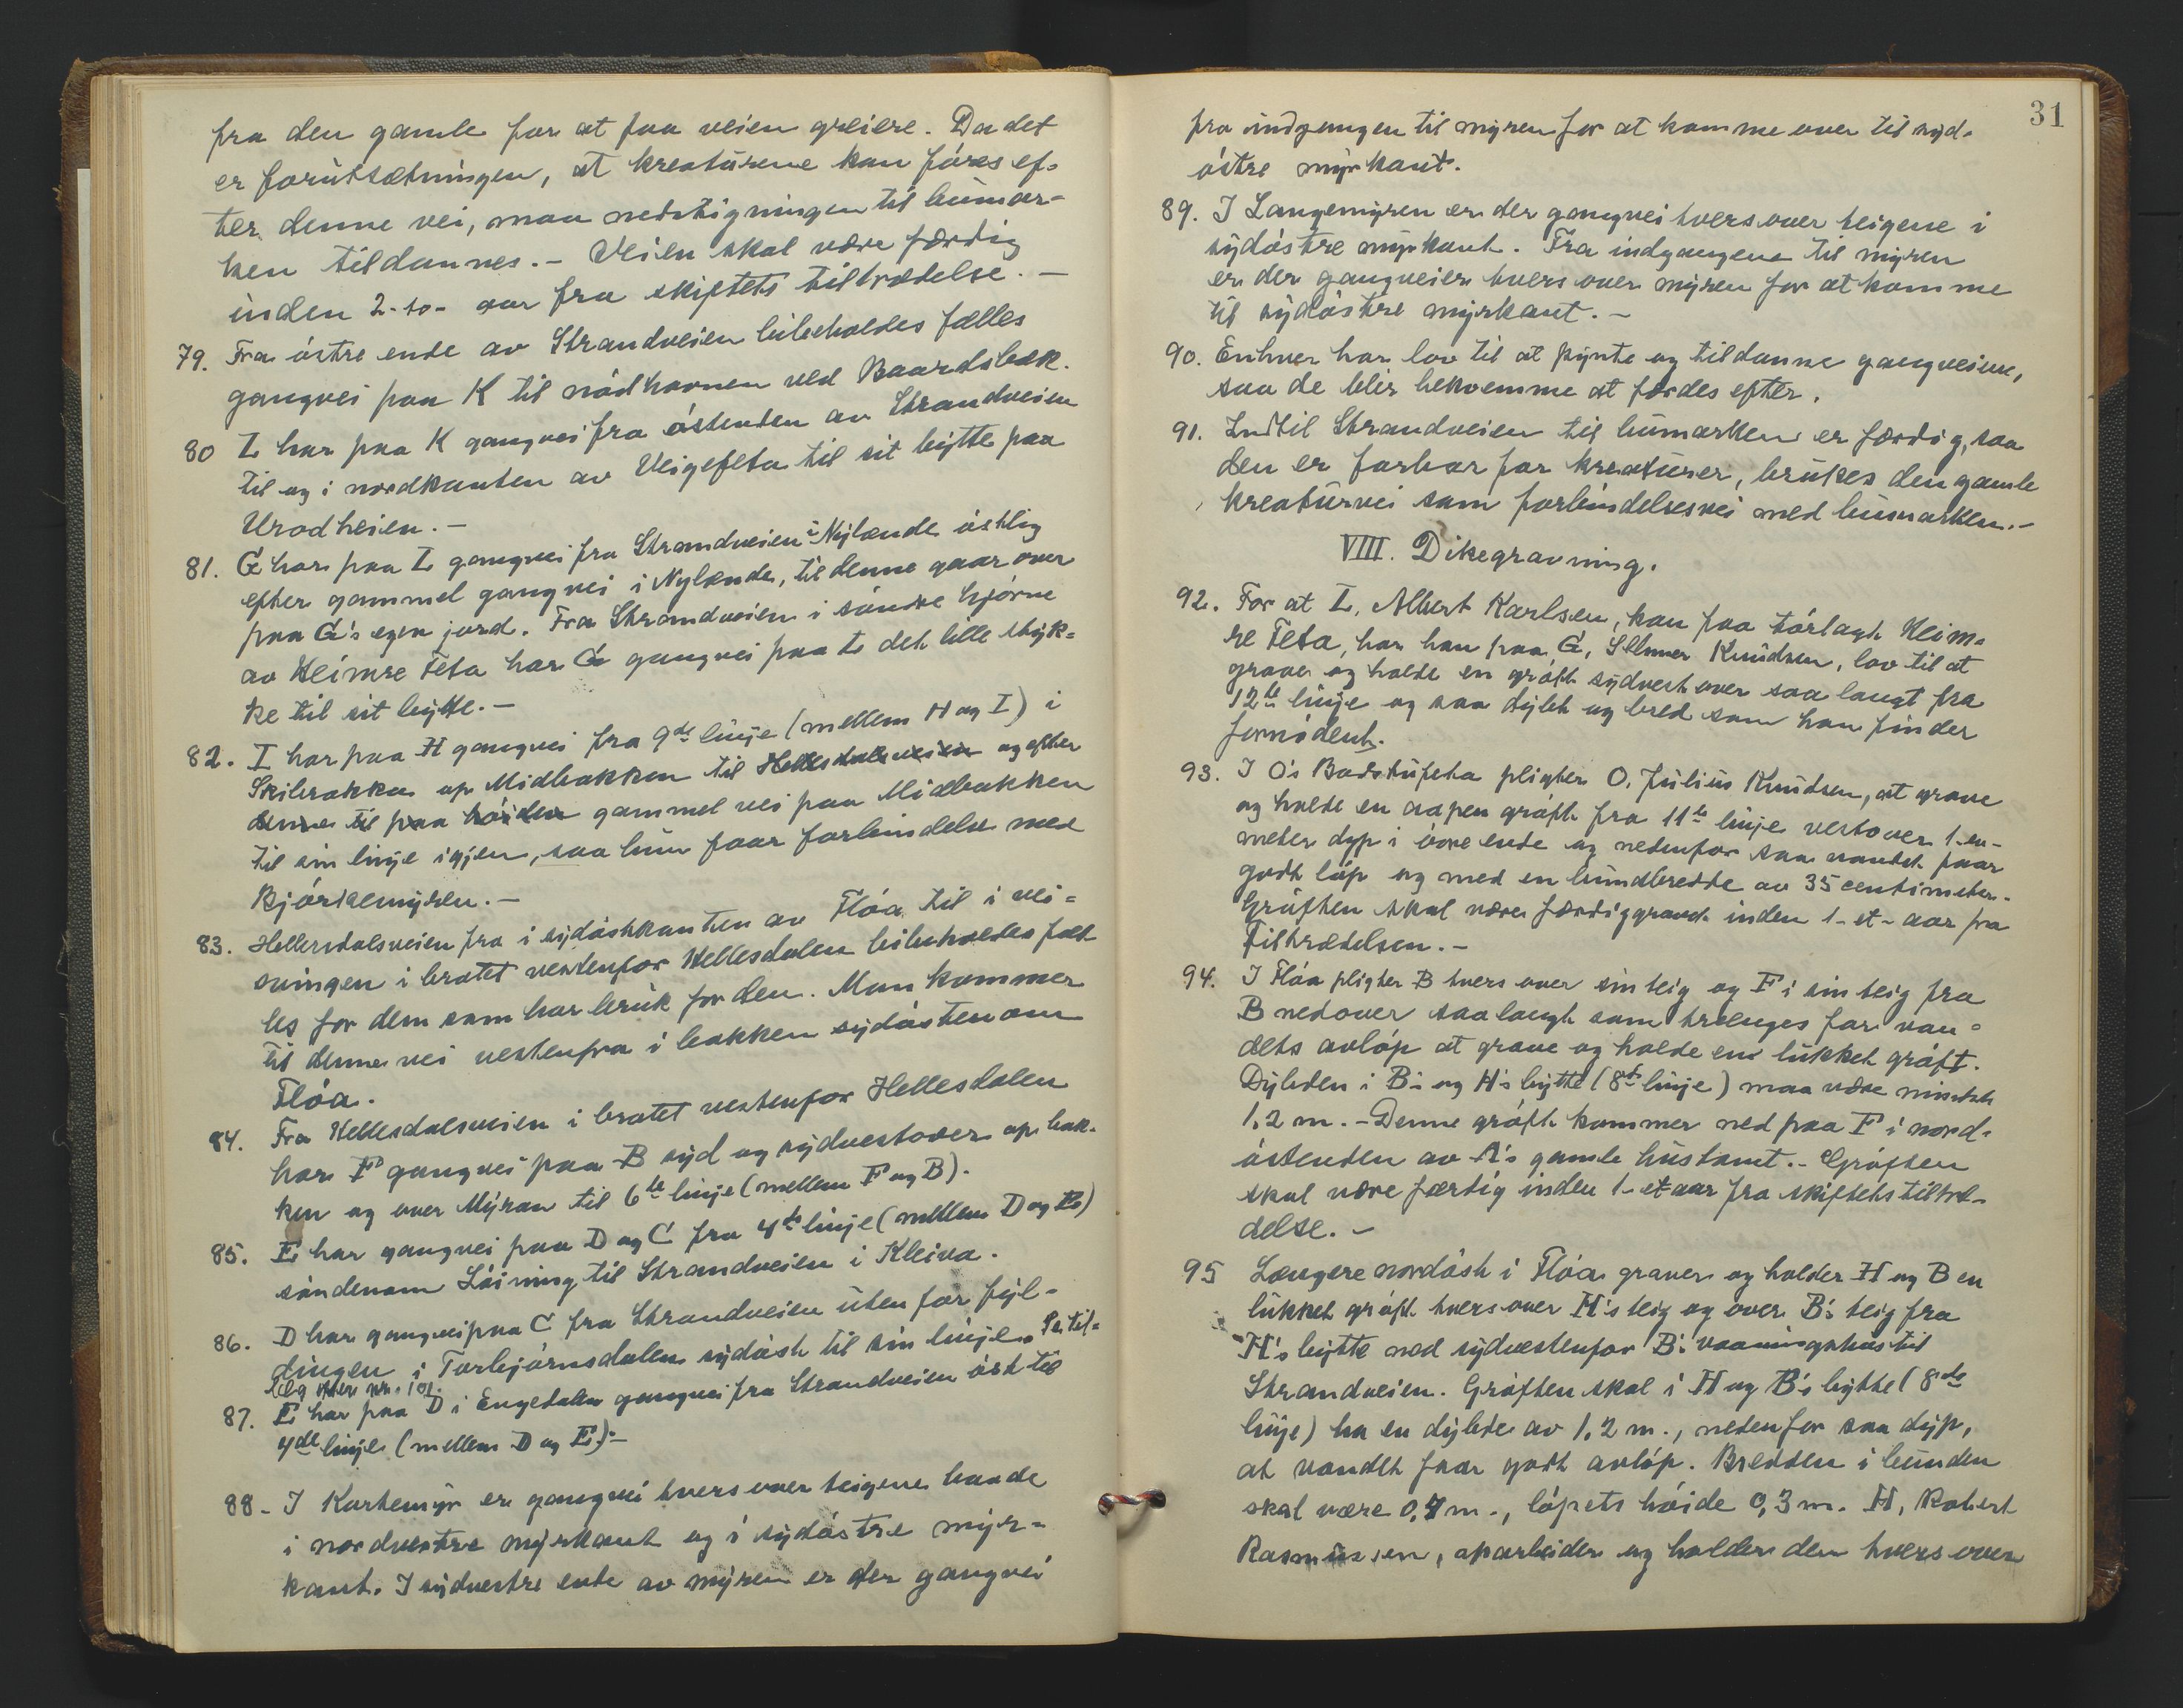 fra den gamle for at faa veien greiere. Da det
er forutsætningen, at kreaturene kan føres ef-
ter denne vei, maa nedstigningen til bumar-
ken tildannes.- Veien skal være færdig
inden 2-to- aar fra skiftets tiltrædelse.-
79. Fra østre ende av Strandveien bibeholdes fælles
gangvei paa K til nødhavnen ved Baardsbæk.
80 L har paa K gangvei fra østenden av Strandveien
til og i nordkanten av Veigefeta til sit bytte paa
Urodheien.-
81. G har paa L gangvei fra Strandveien i Nylænde østlig
efter gammel gangvei i Nylænde, til denne gaar over
paa G's egen jord. Fra Strandveien i søndre hjørne
av Heimre Feta har G gangvei paa L det lille styk-
ke til sit bytte.-
82. I har paa H gangvei fra 9de linje (mellem H og I) i
Skibrakka op Midbakken til Hellesdalsveien og efter
denne til paa høiden gammel vei paa Midbakken
til sin linje igjen, saa hun faar forbindelse med
Bjørkemyren.-
83. Hellesdalsveien fra i sydøstkanten av Fløa til i vei-
svingen i bratet vestenfor Hellesdalen bibeholdes fæl-
les for dem som har bruk for den. Man kommer
til denne vei vestenfra i bakken sydøstenom
Fløa.
84. Fra Hellesdalsveien i bratet vestenfor Hellesdalen
har F gangvei paa B syd og sydvestover op bak-
ken og over Myran til 6te linje (mellem F og B).
85. E har gangvei paa D og C fra 4de linje (mellem D og E)
søndenom Løining til Strandveien i Kleiva.
86. D har gangvei paa C fra Strandveien utenfor fyl-
dingen i Torbjørnsdalen sydøst til sin linje. Se til-
læg efter nr. 101.
87. E har paa D i Engedalen gangvei fra Strandveien øst til
4de linje (mellem D og E).-
88- I Kartemyr er gangvei tvers over teigene baade
i nordvestre myrkant og i sydøstre myr-
kant. I sydvestre ende av myren er der gangvei
31
fra indgangen til myren for at komme over til syd-
østre myrkant.
89. I Langemyren er der gangvei tvers over teigene i
sydøstre myrkant. Fra indgangene til myren
er der gangveier tvers over myren for at komme
til sydøstre myrkant.-
90. Enhver har lov til at pynte og tildanne gangveiene,
saa de blir bekvemme at færdes efter.
91. Indtil Strandveien til bumarken er færdig, saa
den er farbar for kreaturer, brukes den gamle
kreaturvei som forbindelsesvei med bumarken.-
VIII. Dikegravning.
92. For at L, Albert Karlsen, kan faa tørlagt Heim-
re Feta, har han paa G, Elmer Knudsen, lov til at
grave og holde en grøft sydvestover saa langt fra
12te linje og saa dypt og bred som han finder
fornødent.
93. I O's Badstufeta pligter O, Julius Knudsen, at grave
og holde en aapen grøft fra 11te linje vestover 1-en-
meter dyp i øvre ende og nedenfor saa vandet faar
godt løp og med en bundbredde av 35 centimeter.
Grøften skal være færdiggravd inden 1-et- aar fra
tiltrædelsen.-
94. I Fløa pligter B tvers over sin teig og F i sin teig fra
B nedover saa langt som trænges for van-
dets avløp at grave og holde en lukket grøft.
Dybden i B's og H's bytte (8de linje) maa være mindst
1,2 m.- Denne grøft kommer ned paa F i nord-
østenden av A's gamle hustomt.- Grøften
skal være færdig inden 1-et aar fra skiftets tiltræ-
delse.-
95 Længere nordøst i Fløa graver og holder H og B en
lukket grøft tvers over H's teig og over B's teig fra
H's bytte ned sydvestenfor B's vaaningshus til
Strandveien. Grøften skal i H og B's bytte (8de
linje) ha en dybde av 1,2 m., nedenfor saa dyp,
at vandet faar godt avløp. Bredden i bunden
skal være 0,4 m., løpets høide 0,3 m. H, Robert
Rasmussen, oparbeider og holder den tvers over